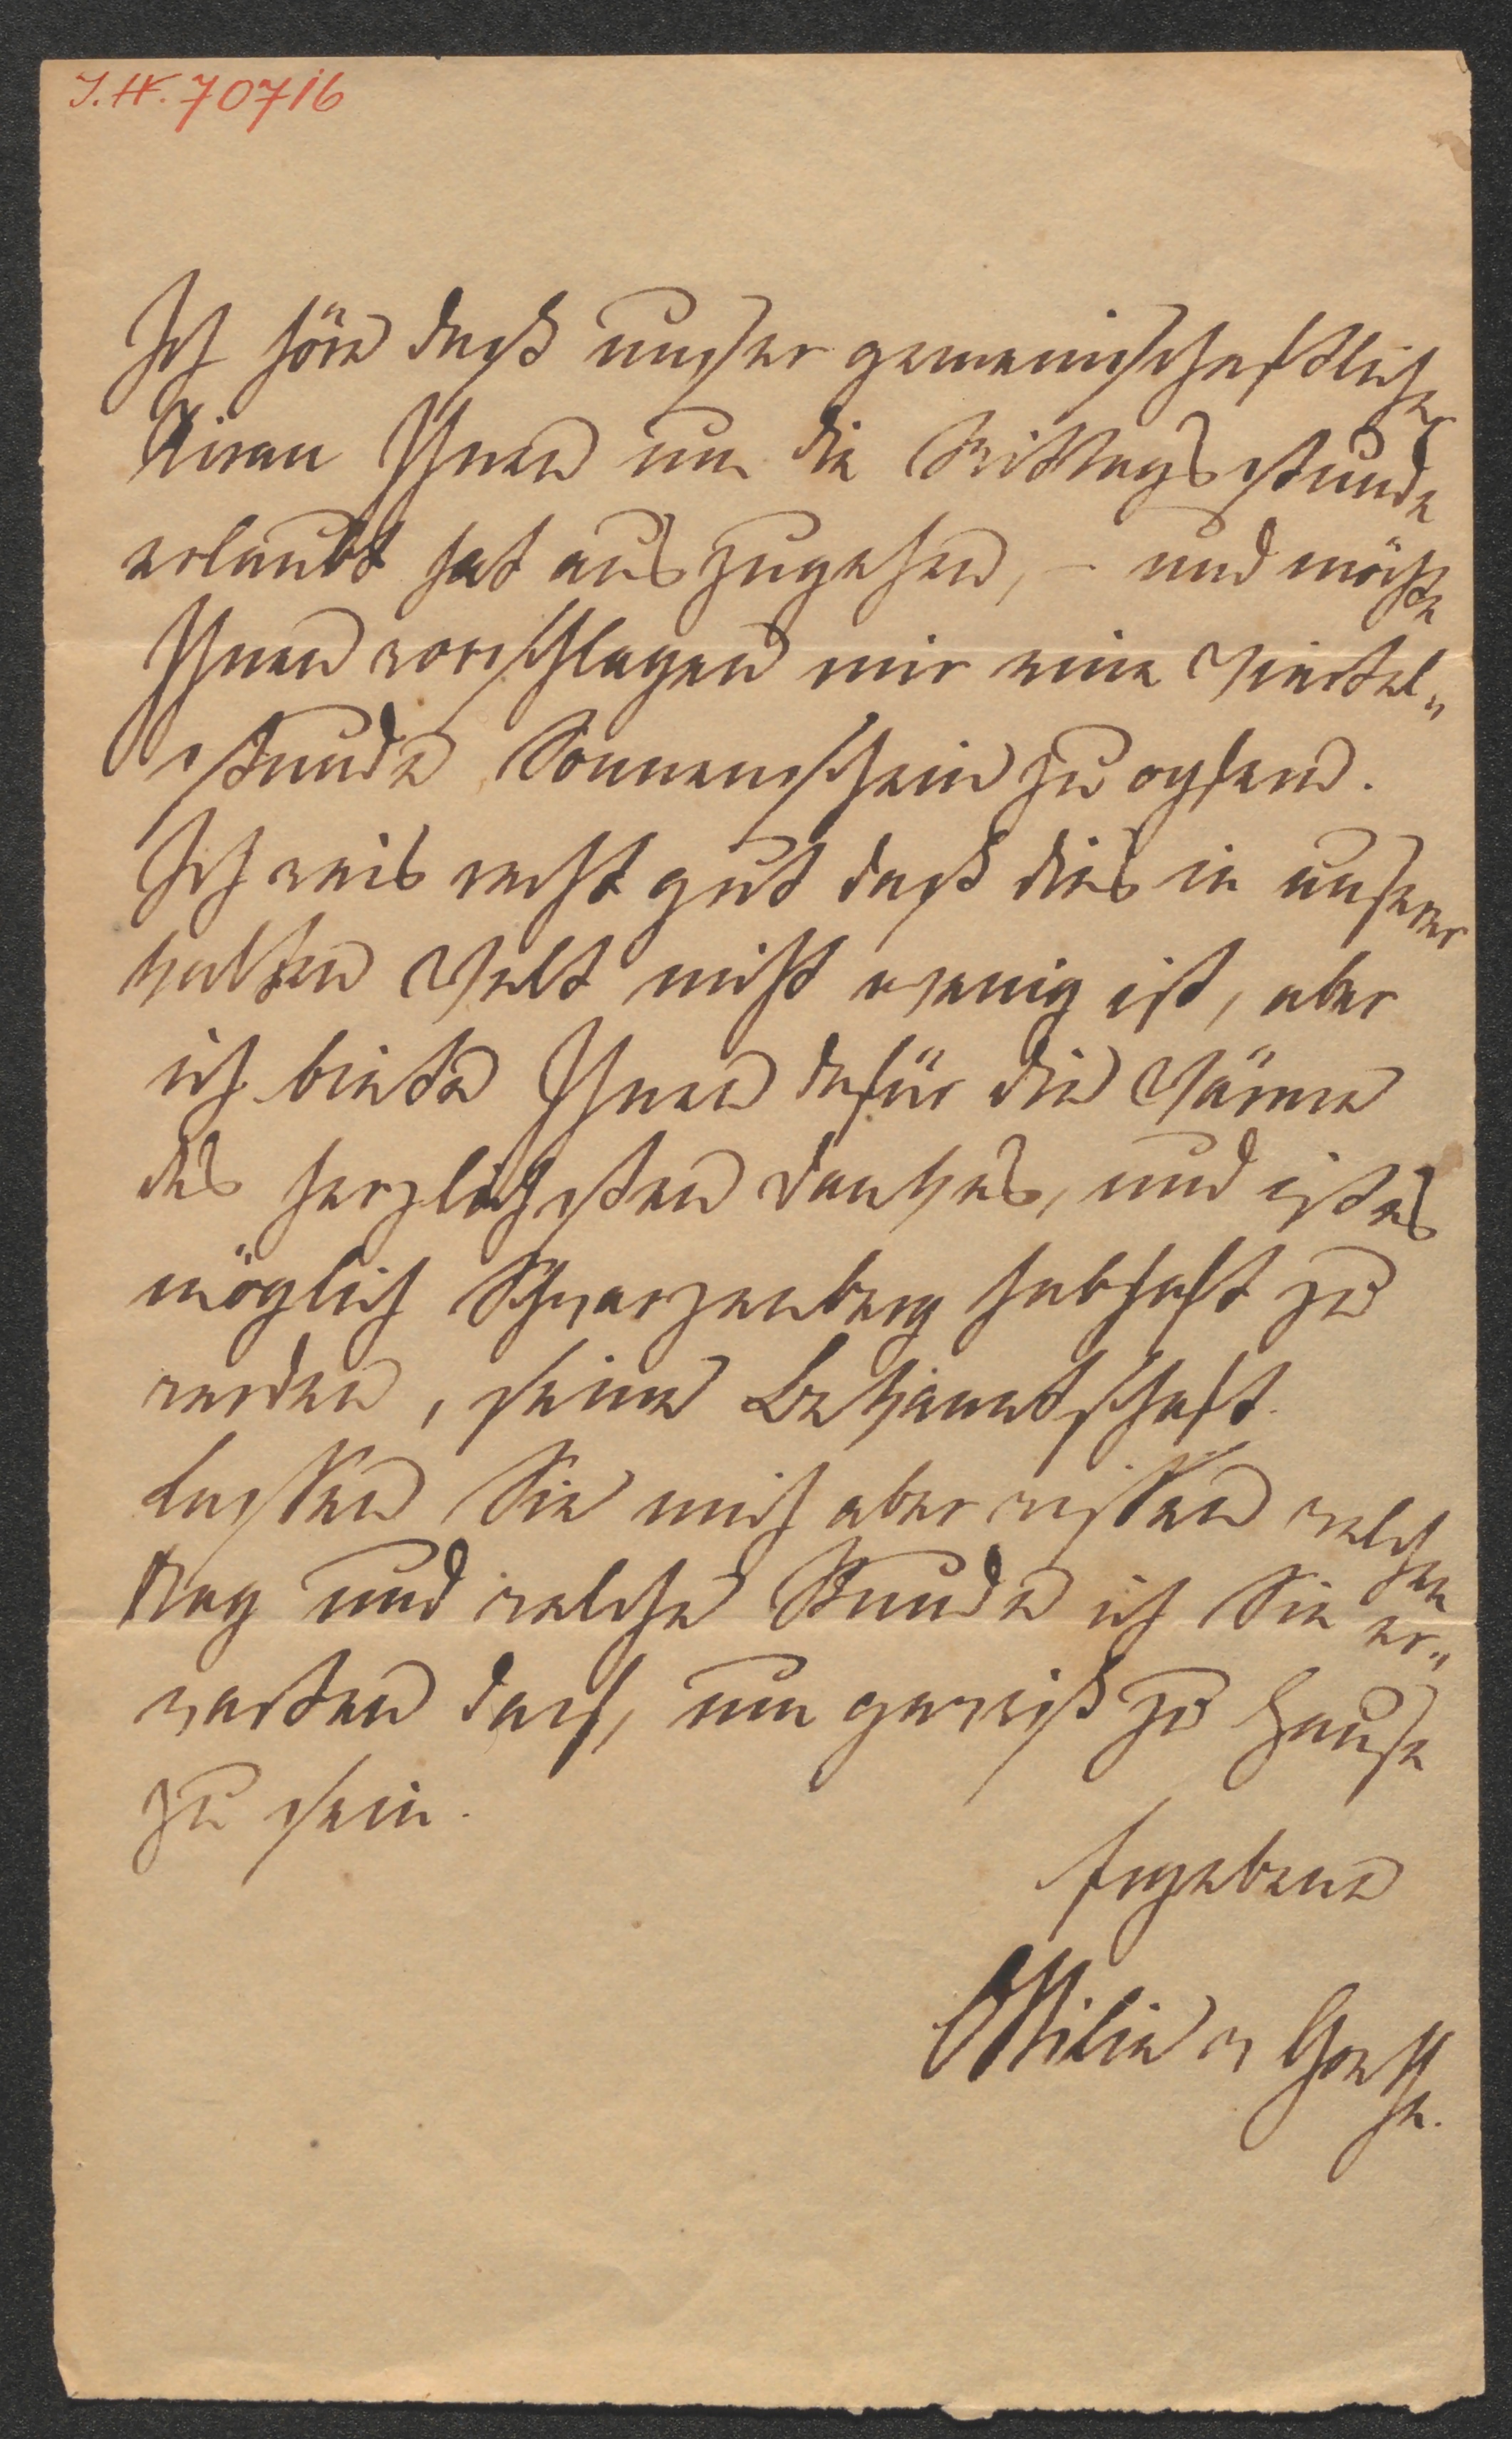 J. N. 70716
Ich höre daß unser gemeinschaftlicher
Ihnen um die Mittagsstunde
erlaubt hat auszugehen, – und möchte
Ihnen vorschlagen mir eine Viertel„
stunde Sonnenschein zu opfern.
Ich weis recht gut daß dies in unserer
kalten Welt nicht wenig ist, aber
ich biete Ihnen dafür die Wärme
des herzlichsten Dankes, und ist es
möglich Schwarzenberg habhaft zu
werden, seine Bekanntschaft.
Lassen Sie mich aber wissen welchen
Tag und welche Stunde ich Sie er„
warten darf, um gewiß zu Hause
zu sein.
Ergebene
Ottilie v Goethe.